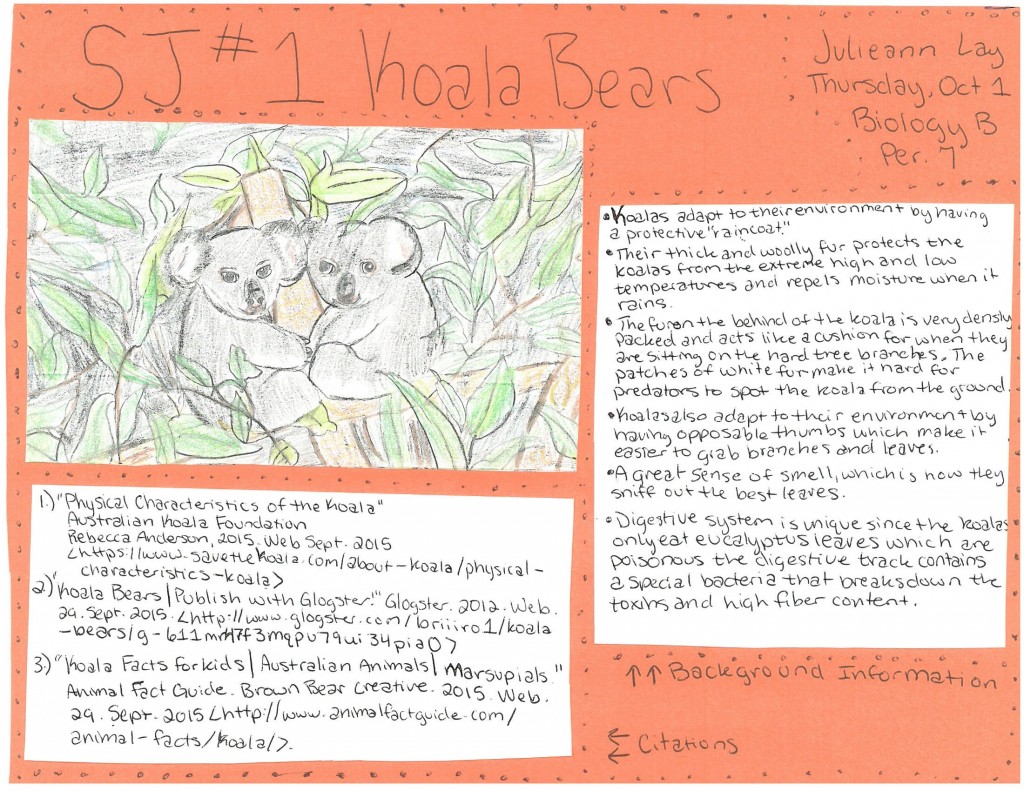 SJ #1 Koala Bears
Julieann Lay
Thursday, Oct 1
Biology B
Per. 7
•Koalas adapt to their environment by having
a protective "raincoat."
•Their thick and woolly fur protects the
koalas from the extreme high and low
temperatures and repels moisture when it
rains.
•The fur on the behind of the koala is very densly
packed and acts like a cushion for when they
are sitting on the hard tree branches. The
patches of white fur make it hard for
predators to spot the koala from the ground.
•Koalas also adapt to their environment by
having opposable thumbs which make it
easier to grab branches and leaves.
•A great sense of smell, which is how they
sniff out the best leaves.
•Digestive system is unique since the koalas
only eat eucalyptus leaves which are
poisonous the digestive track contains
a special bacteria that breaks down the
toxins and high fiber content.
↑↑ Background Information
1.) "Physical Characteristics of the Koala"
Australian Koala Foundation
Rebecca Anderson, 2015. Web Sept. 2015
<https://www.savethekoala.com/about-koala/physical-
characteristics-koala>
2.) "Koala Bears | Publish with Glogster!" Glogster. 2012. Web.
29. Sept. 2015. <http://www.glogster.com/loriiiro1/koala
-bears/g-
3.) "Koala Facts for kids | Australian Animals | Marsupials."
Animal Fact Guide. Brown Bear Creative. 2015. Web.
29. Sept. 2015 <http://www.animalfactguide.com/
animal-facts/koala/>.
← Citations